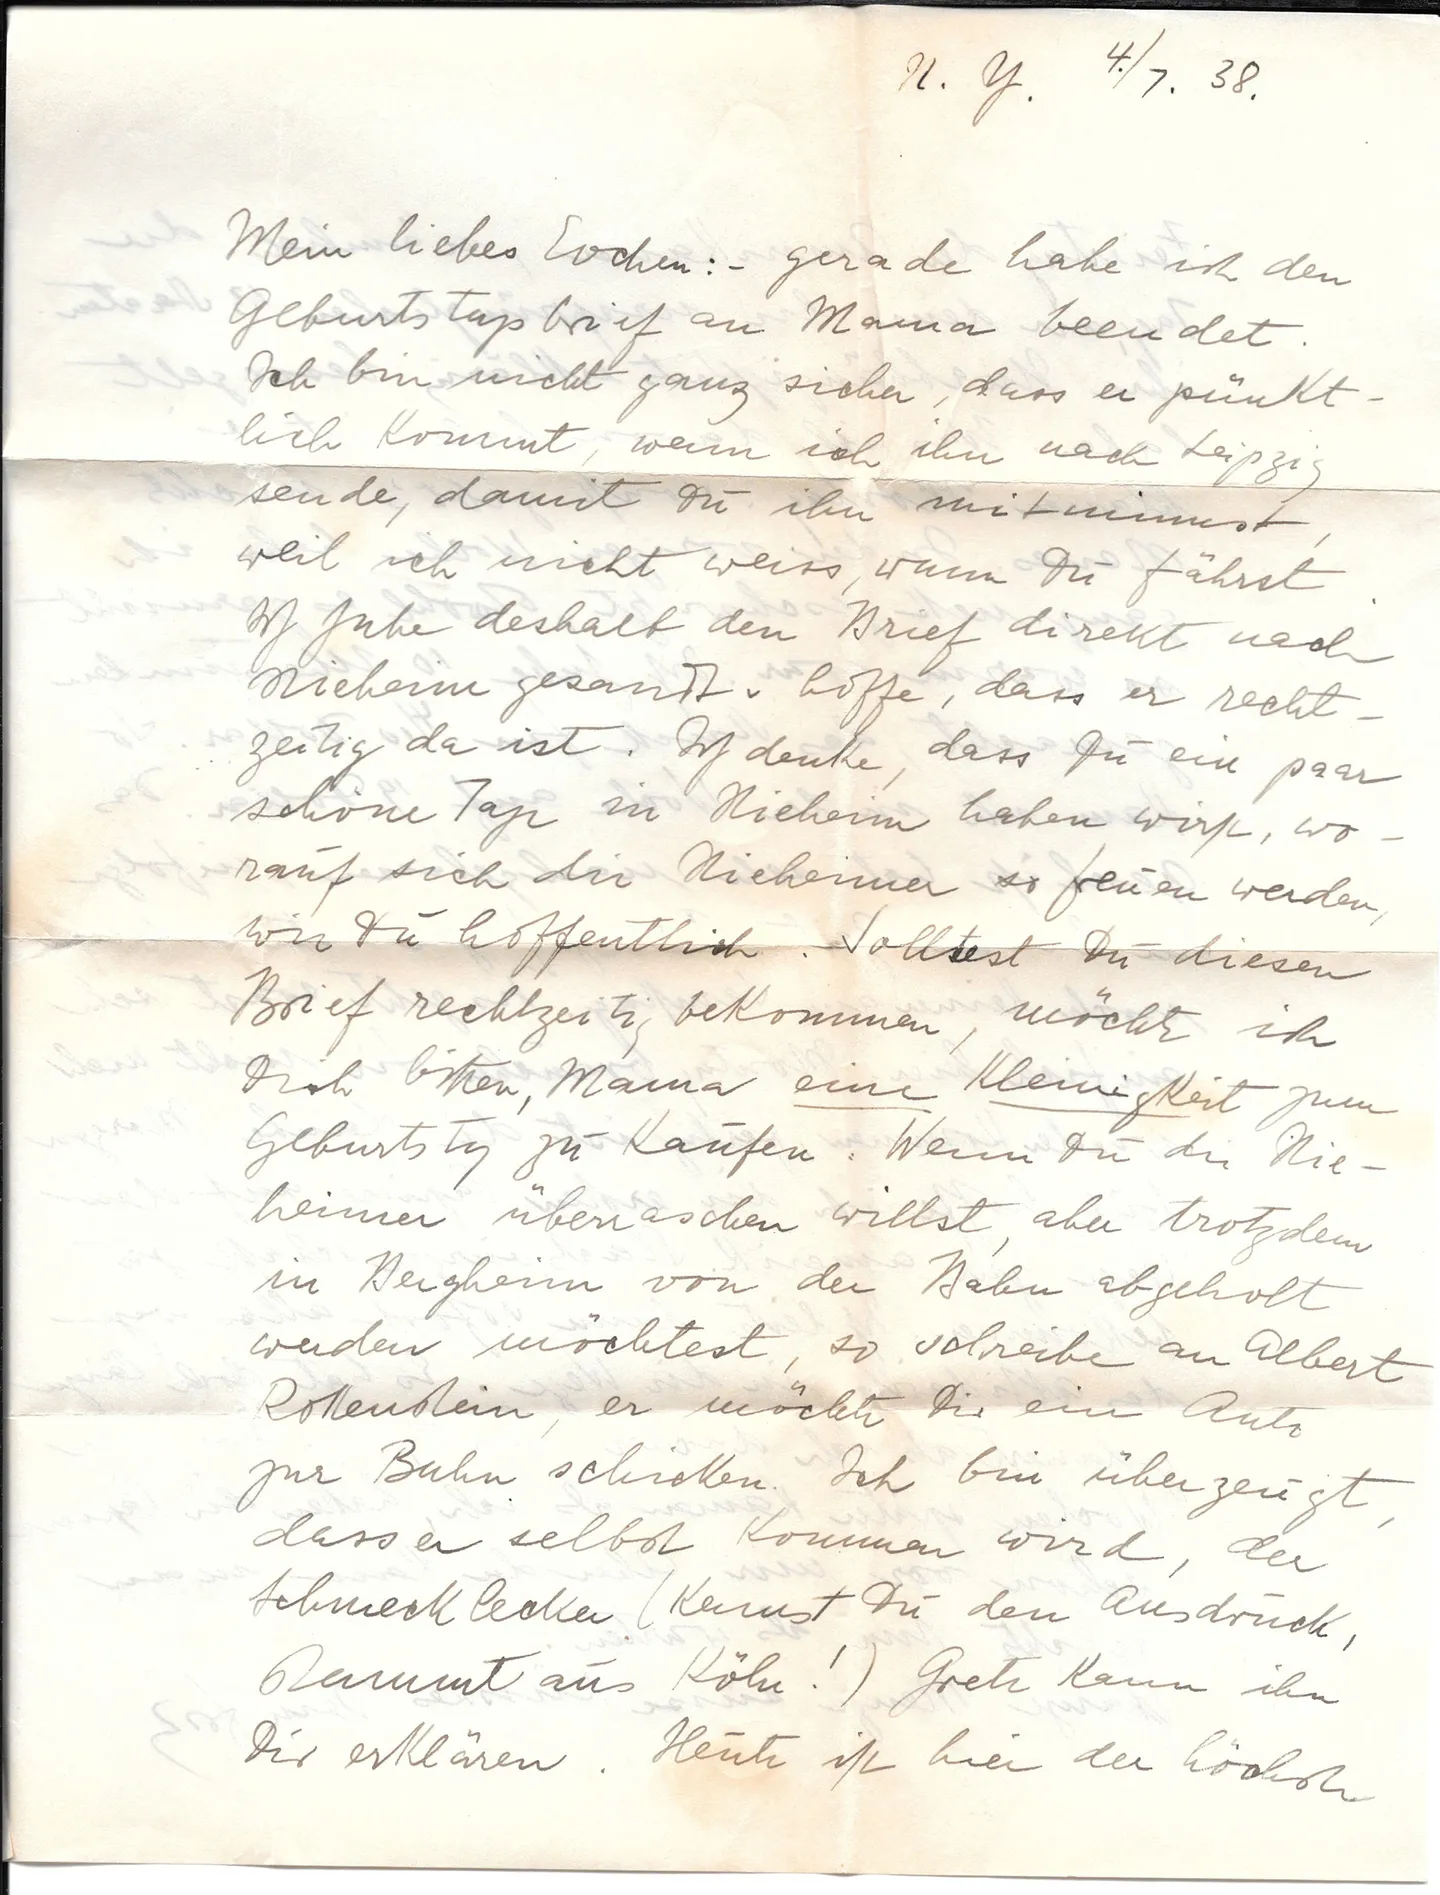 N. Y. 4./7. 38.
Mein liebes Evchen:- gerade habe ich den
Geburtstagsbrief an Mama beendet.
Ich bin nicht ganz sicher, dass er pünkt-
lich kommt, wenn ich ihn nach Leipzig
sende, damit Du ihn mitnimmst,
weil ich nicht weiss, wann Du fährst.
Ich habe deshalb den Brief direkt nach
Nieheim gesandt u. hoffe, dass er recht-
zeitig da ist. Ich denke, dass Du ein paar
schöne Tage in Nieheim haben wirst, wo-
rauf sich die Nieheimer so freuen werden,
wie Du hoffentlich. Solltest Du diesen
Brief rechtzeitig bekommen, möchte ich
Dich bitten, Mama eine Kleinigkeit zum
Geburtstg zu kaufen. Wenn Du die Nie-
heimer überraschen willst, aber trotzdem
in Bergheim von der Bahn abgeholt
werden möchtest, so schreibe an Albert
Rottenstein, er möchte Dir ein Auto
zur Bahn schicken. Ich bin überzeugt,
dass er selbst kommen wird, der
Schmecklecker (kennst Du den Ausdruck,
stammt aus Köln!) Grete kann ihn
Dir erklären. Heute ist hier der höchste